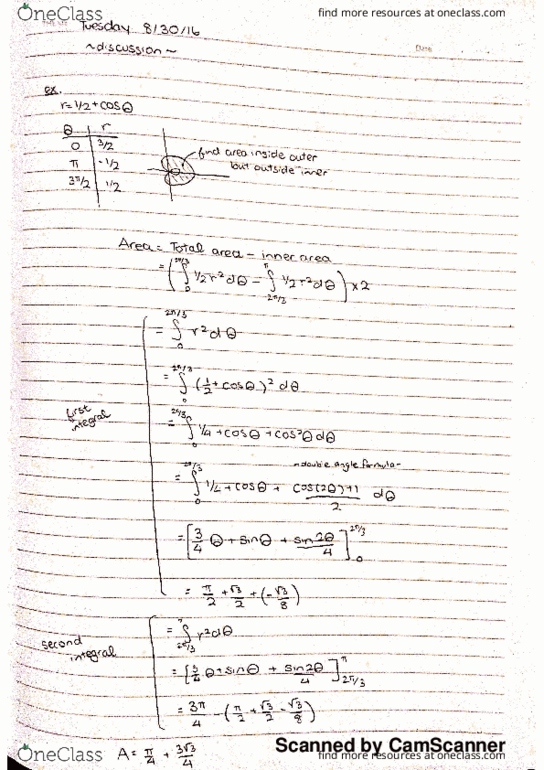 OneClass
find more resources at oneclass.com
Tuesday 8/30/16
~discussion~
ex.
r = 1/2 + cosθ
θ | r
0 | 3/2
π | -1/2
3π/2 | 1/2
find area inside outer
but outside inner
Area = Total area - inner area
= (∫₀^{2π/3} 1/2 r² dθ - ∫_{2π/3}^{π} 1/2 r² dθ) × 2
first integral
= ∫₀^{2π/3} r² dθ
= ∫₀^{2π/3} (1/2 + cosθ)² dθ
= ∫₀^{2π/3} 1/4 + cosθ + cos²θ dθ
-double angle formula-
= ∫₀^{2π/3} 1/4 + cosθ + (cos(2θ)+1)/2 dθ
= [3/4 θ + sinθ + sin2θ/4]₀^{2π/3}
= π/2 + √3/2 + (-√3/8)
second integral
= ∫_{2π/3}^{π} r² dθ
= [3/4 θ + sinθ + sin2θ/4]_{2π/3}^{π}
= 3π/4 - (π/2 + √3/2 - √3/8)
A = π/4 + 3√3/4
Scanned by CamScanner
OneClass
find more resources at oneclass.com